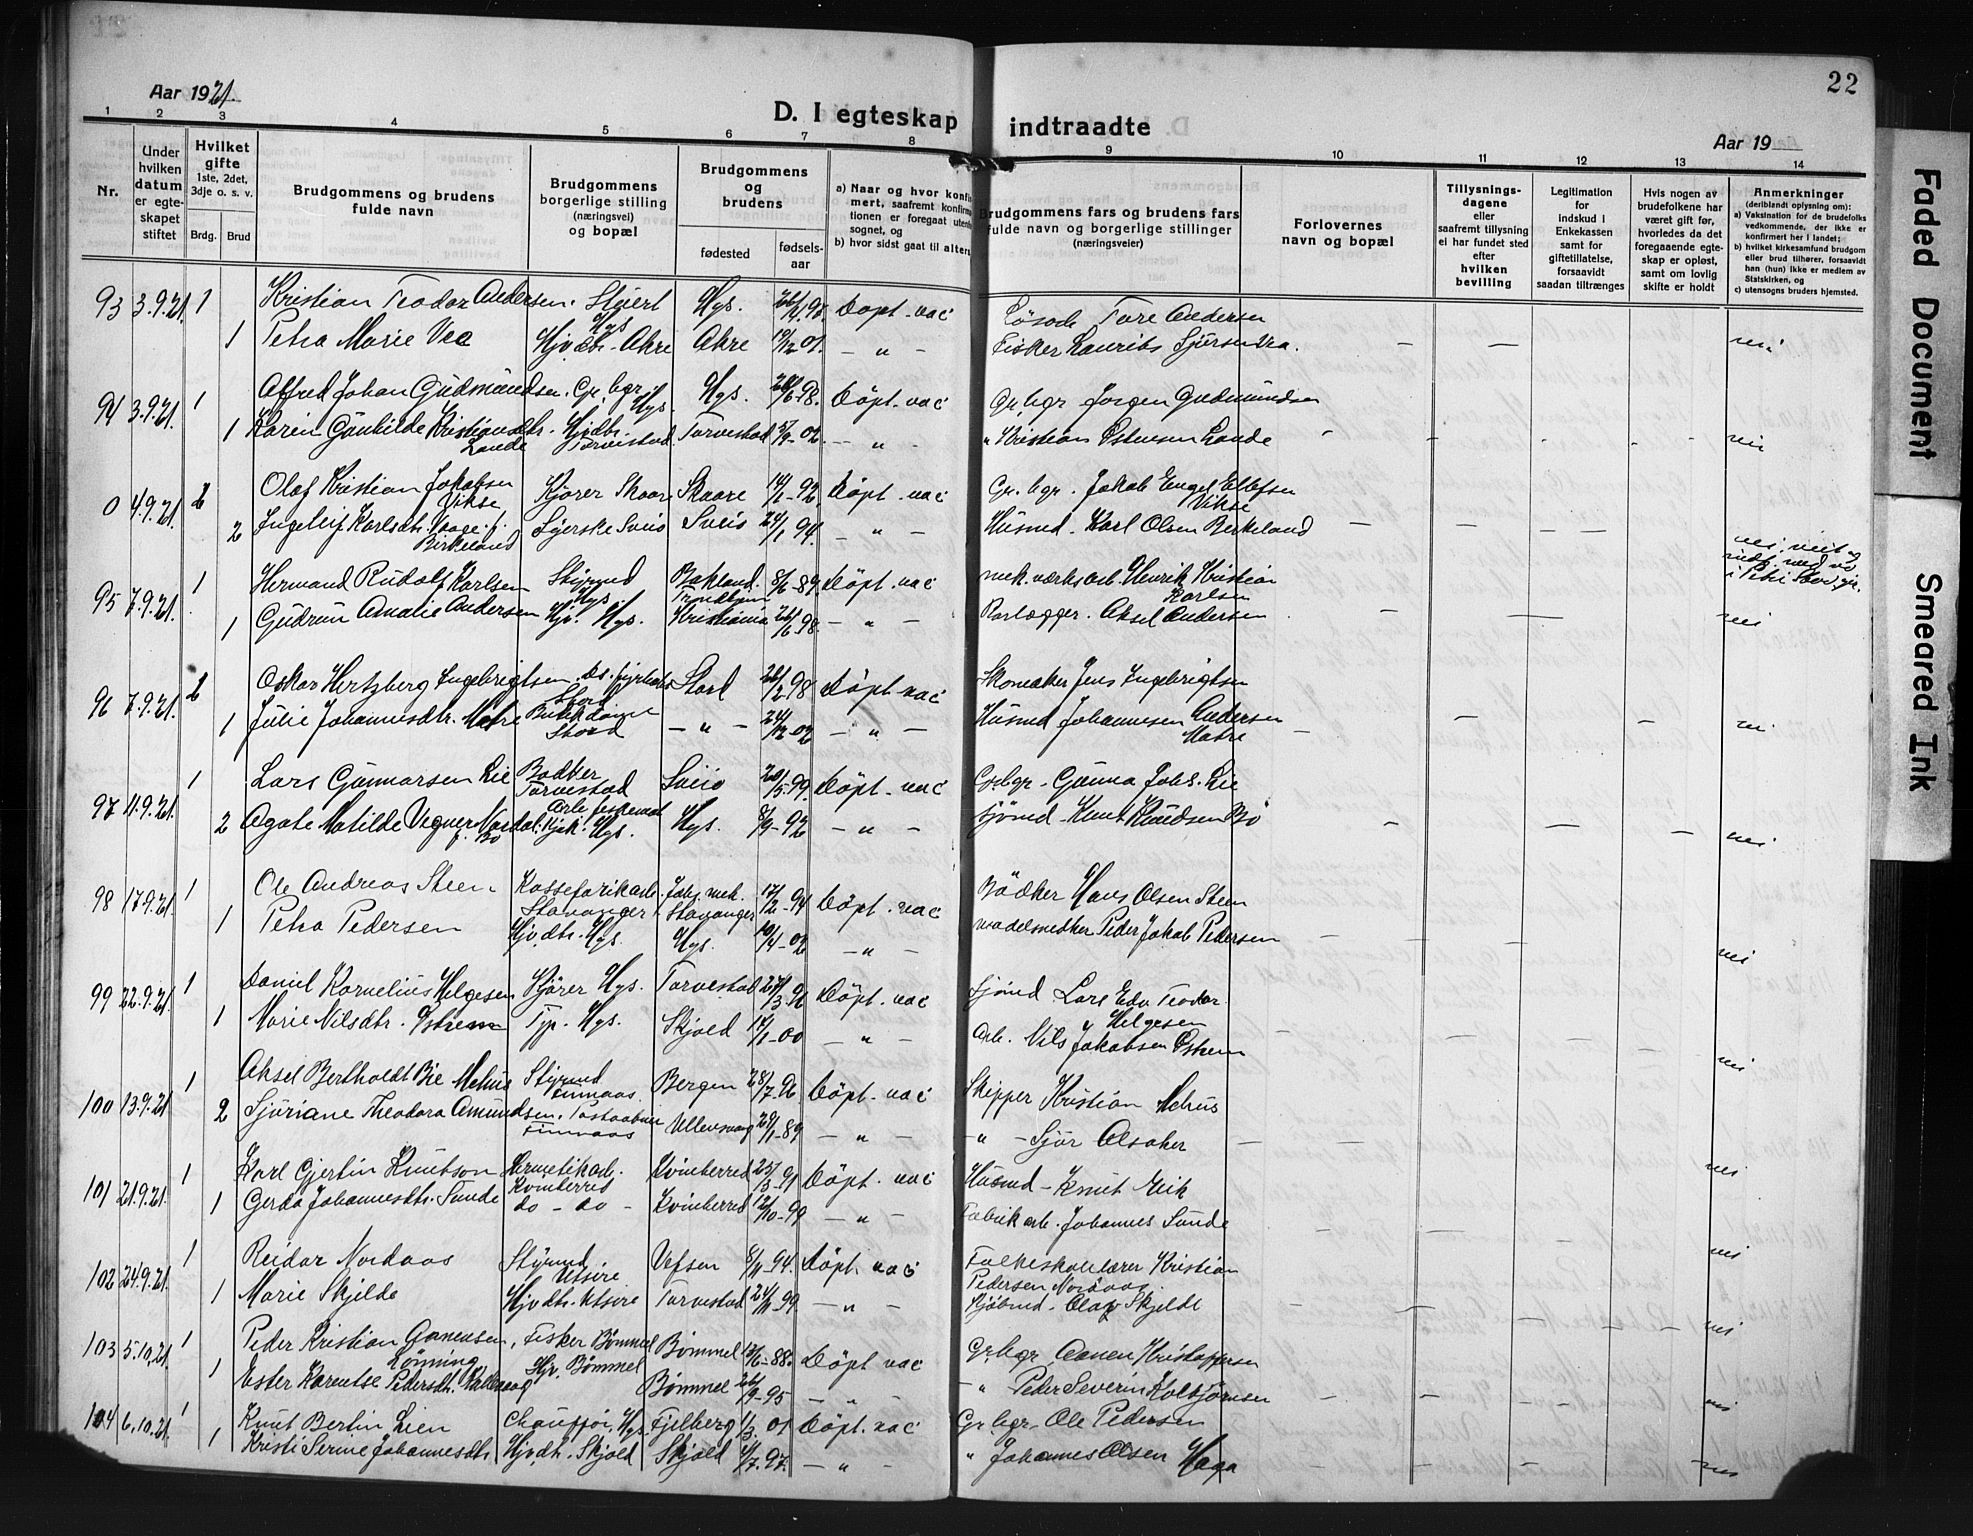 22
Aar 1921.
Aar 19
D. I egteskap indtraadte
1 2 3 4 5 6 7 8 9 10 11 12 13 14
Nr.
Under hvilken datum er egteskapet stiftet
Hvilket gifte
1ste, 2det, 3dje o. s. v.
Brdg. Brud
Brudgommens og brudens fulde navn
Brudgommens borgerlige stilling (næringsvei) og bopæl
Brudgommens og brudens
fødested
fødsels-aar
a) Naar og hvor konfirmert, saafremt konfirmationen er foregaat
sognet, og
b) hvor sidst gaat til alters
Brudgommens fars og brudens fars fulde navn og borgerlige stillinger (næringsveier)
Forlovernes navn og bopæl
Tillysningsdagene eller saafremt tillysning ei har fundet sted efter hvilken bevilling
Legitimation for indskud i Enkekassen samt for giftetillatelse, forsaavidt saadan tiltrænges
Hvis nogen av brudefolkene har været gift før, hvorledes da det foregaaende egteskap er opløst, samt om lovlig skifte er holdt
Anmerkninger
(deriblandt oplysning om):
a) Vaksination for de brudefolks vedkommende, der ikke er konfirmert her i landet;
b) hvilket kirkesamfund brudgom eller brud tilhører, forsaavidt han (hun) ikke er medlem av Statskirken, og
c) utensogns bruders hjemsted.
93 3.9.21. 1 Kristian Teodor Andersen. Stuert Hgs. Hgs. Døpt. vac Løsode Tore Andersen
1 Petra Marie Vea Hjv. dtr. Akre Akre 19/12 01. - " - Fisker Laurits Sjursen Vea. nei
94 3.9.21. 1 Alfred Johan Gudmundsen. Gr. bgr. Hgs. Hgs. 98. Døpt. vac Gr. bgr Jørgen Gudmundsen
1 Karen Gunhilde Kristiansdtr. Lande Hjv. dtr. Torvestad Torvestad 02. - " - " Kristian Østensen Lande nei
0 4.9.21. Olaf Kristian Jakobsen Vikse Kjører Skaare Skaare 14/1-92. Døpt. vac Gr. bgr. Jakob Engel Ellefsen Vikse
2 Ingeleif Karlsdtr. Vaage f. Birkeland Syerske Sveio Sveio 24/1 94. - " - Husmd. Karl Olsen Berkeland
95 7.9.21. 1 Hermand Rudolf Karlsen Styrmd Hgs. Bakland. Trondhjem 8/6-89. Døpt. vac mek. værks arb. Henrik Kristian Karlsen
1 Gudrun Amalie Andersen Hjv. Hgs. Kristiania 26/6 98. - " - Rørlægger. Aksel Andersen nei
96 7.9.21. Oskar Hertzberg Ingebrigtsen. Ds. fyrbøter Stord Stord 26/2-98 Døpt. vac Skomaker Jens Ingebrigtsen
1 Julie Johannesdtr. Matre Butikdame Stord - " - 24/12-02 - " - Husmd Johannesen Andersen Matre nei
97 11.9.21. 1 Lars Gunnarsen Lie Bødker Torvestad Sveio 20/5-99. Døpt. vac Gr. bgr. Gunna Johs. Lie
2 Agate Matilde Vegner Nordal. f. Bø Hjsk. Hgs. Hgs. 8/9-92 - " - Sjømd - Knut Knudsen Bø nei
98 17.9.21. 1 Ole Andreas Steen Kassefabrikarb. Stavanger Stavanger 17/2-94 Døpt. vac Bødker Hans Olsen Steen
1 Petra Pedersen Hjv. dtr. Hgs. Hgs. 10/4-02 - " - vadelsmedker Peder Jakob Pedersen nei
99 22.9.21. 1 Daniel Kornelius Helgesen Kjører Hgs. Torvestad Døpt. vac Sjømd Lars Edv Teodor Helgesen
1 Marie Nilsdtr. Østrem Typ. Hgs. Skjold 17/1-00 - " - Arb. Nils Jakobsen Østrem nei
100 13.9.21 1 Aksel Bertholdt Bie Mehus Styrmd Finnaas. Bergen 28/7-92 Døpt. vac Skipper Kristian Mehus
2 Sjøriane Theodora Amundsen. Postaabner Finnaas Ullensvang 29/1-89 - " - - " - Sjur Alsaker nei
101 21.9.21. 1 Karl Gjertin Knutson Hermetikarb. Kvinherred Kvinherred 25/3-91 Døpt. vac Husmd - Knut Meik
1 Gerda Johannesdtr. Sunde do - do - Kvinherred 12/10-99 - " - Fabrik arb. Johannes Sunde nei
102 24.9.21. 1 Reidar Nordaas Styrmd Utsire Vefsen 8/11-94. Døpt. vac Folkeskolelærer Kristian Pedersen Nordaas.
1 Marie Skjelde Hjv dtr. Utsire Torvestad 24/11-99 - " - Kjøbmd - Olav Skjelde nei
103 5.10.21. 1 Peder Kristian Aanensen, Rønning Fisker Bømmel Bømmel 88. Døpt vac Gr. bgr Aanen Kristoffersen
1 Ester Karentse Pedersdtr. Kallevaag Hjv. Bømmel Bømmel 26/9-95 - " - - " Peder Severin Kolbjørnsen nei
104 6.10.21. 1 Knut Bertin Lien Chauffør. Hgs. Fjelberg 1/3. 01 Døpt. vac Gr. bgr. Ole Pedersen
1 Kristi Serine Johannesdtr. Hjv. dtr. Skjold Skjold 4/7-97. - " - " Johannes Olsen Haga nei
Faded Document
Smeared Ink